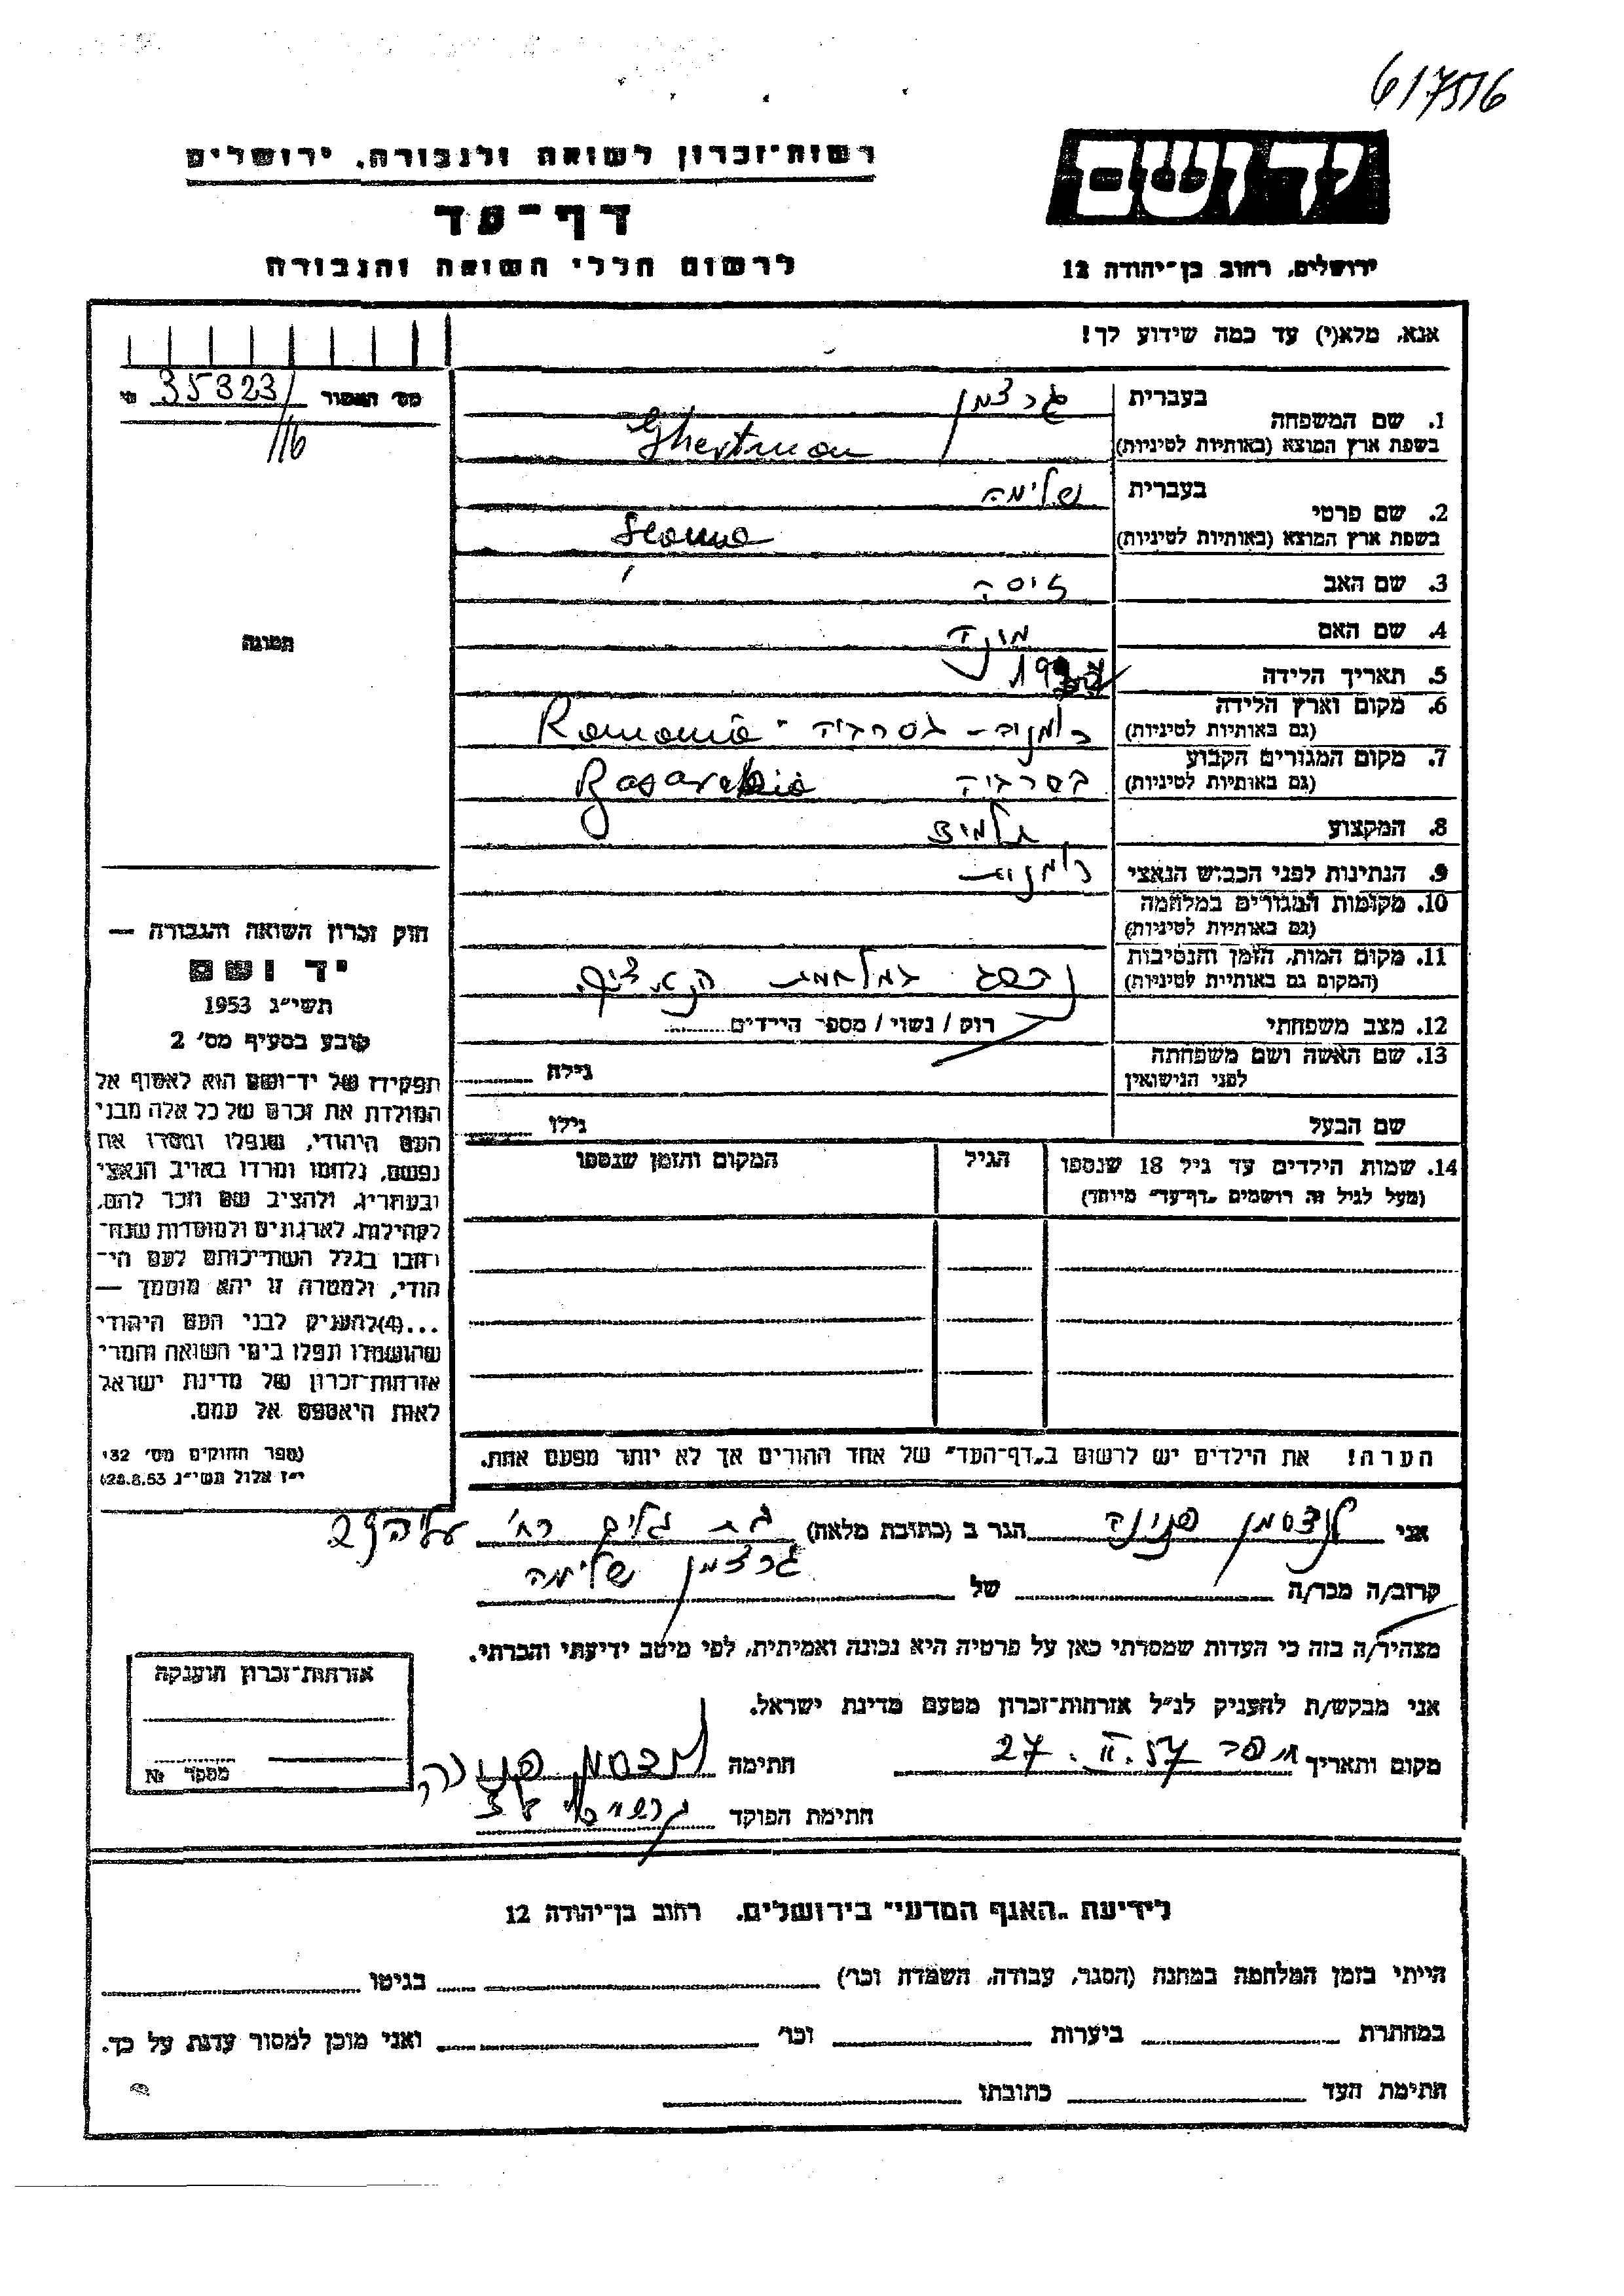 617516
רשות-זכרון לשואה ולגבורה, ירושלים
יד ושם
דף-עד
לרשום חללי השואה והגבורה
ירושלים, רחוב בן-יהודה 12
אנא, מלא(י) עד כמה שידוע לך!
מס' האסור 35323/116
1. שם המשפחה בעברית גרצמן
בשפת ארץ המוצא (באותיות לטיניות) Ghertman
2. שם פרטי בעברית שלימה
בשפת ארץ המוצא (באותיות לטיניות)
3. שם האב זיסה
4. שם האם
5. תאריך הלידה
6. מקום וארץ הלידה (גם באותיות לטיניות) רומניה - בסרביה - Romania
7. מקום המגורים הקבוע (גם באותיות לטיניות) בסרביה Basarabia
8. המקצוע תלמיד
9. הנתינות לפני הכבוש הנאצי רומנית
10. מקומות המגורים במלחמה (גם באותיות לטיניות)
11. מקום המות, הזמן והנסיבות (המקום גם באותיות לטיניות) נהרג במלחמת הנאצים
12. מצב משפחתי רוק / נשוי / מספר הילדים
13. שם האשה ושם משפחתה לפני הנישואין גילה
שם הבעל גילו
14. שמות הילדים עד גיל 18 שנספו הגיל המקום והזמן שנספו
(מעל לגיל זה רושמים "דף-עד" מיוחד)
הערה! את הילדים יש לרשום ב"דף-העד" של אחד ההורים אך לא יותר מפעם אחת.
תמונה
חוק זכרון השואה והגבורה —
יד ושם
תשי"ג 1953
קובע בסעיף מס' 2
תפקידו של יד-ושם הוא לאסוף אל
המולדת את זכרם של כל אלה מבני
העם היהודי, שנפלו ומסרו את
נפשם, נלחמו ומרדו באויב הנאצי
ובעוזריו, ולהציב שם וזכר להם,
לקהילות, לארגונים ולמוסדות שנח-
רבו בגלל השתייכותם לעם הי-
הודי, ולמטרה זו יהא מוסמך —
...(4)להעניק לבני העם היהודי
שהושמדו ונפלו בימי השואה והמרי
אזרחות-זכרון של מדינת ישראל
לאות היאספם אל עמם.
(ספר החוקים מס' 132
י"ז אלול תשי"ג 28.8.53)
אני לנצסמן פנינה הגר ב (כתובת מלאה) בת גלים רח' עליה 29
קרוב/ה מכר/ה של גרצמן שלימה
מצהיר/ה בזה כי העדות שמסרתי כאן על פרטיה היא נכונה ואמיתית, לפי מיטב ידיעתי והכרתי.
אני מבקש/ת להעניק לנ"ל אזרחות-זכרון מטעם מדינת ישראל.
מקום ותאריך חיפה 27.II.57 חתימה לנצסמן פנינה
חתימת הפוקד
אזרחות-זכרון הוענקה
מספר №
לידיעת "האגף המדעי" בירושלים, רחוב בן-יהודה 12
הייתי בזמן המלחמה במחנה (הסגר, עבודה, השמדה וכו') בגיטו
במחתרת ביערות וכו' ואני מוכן למסור עדות על כך.
חתימת העד כתובתו